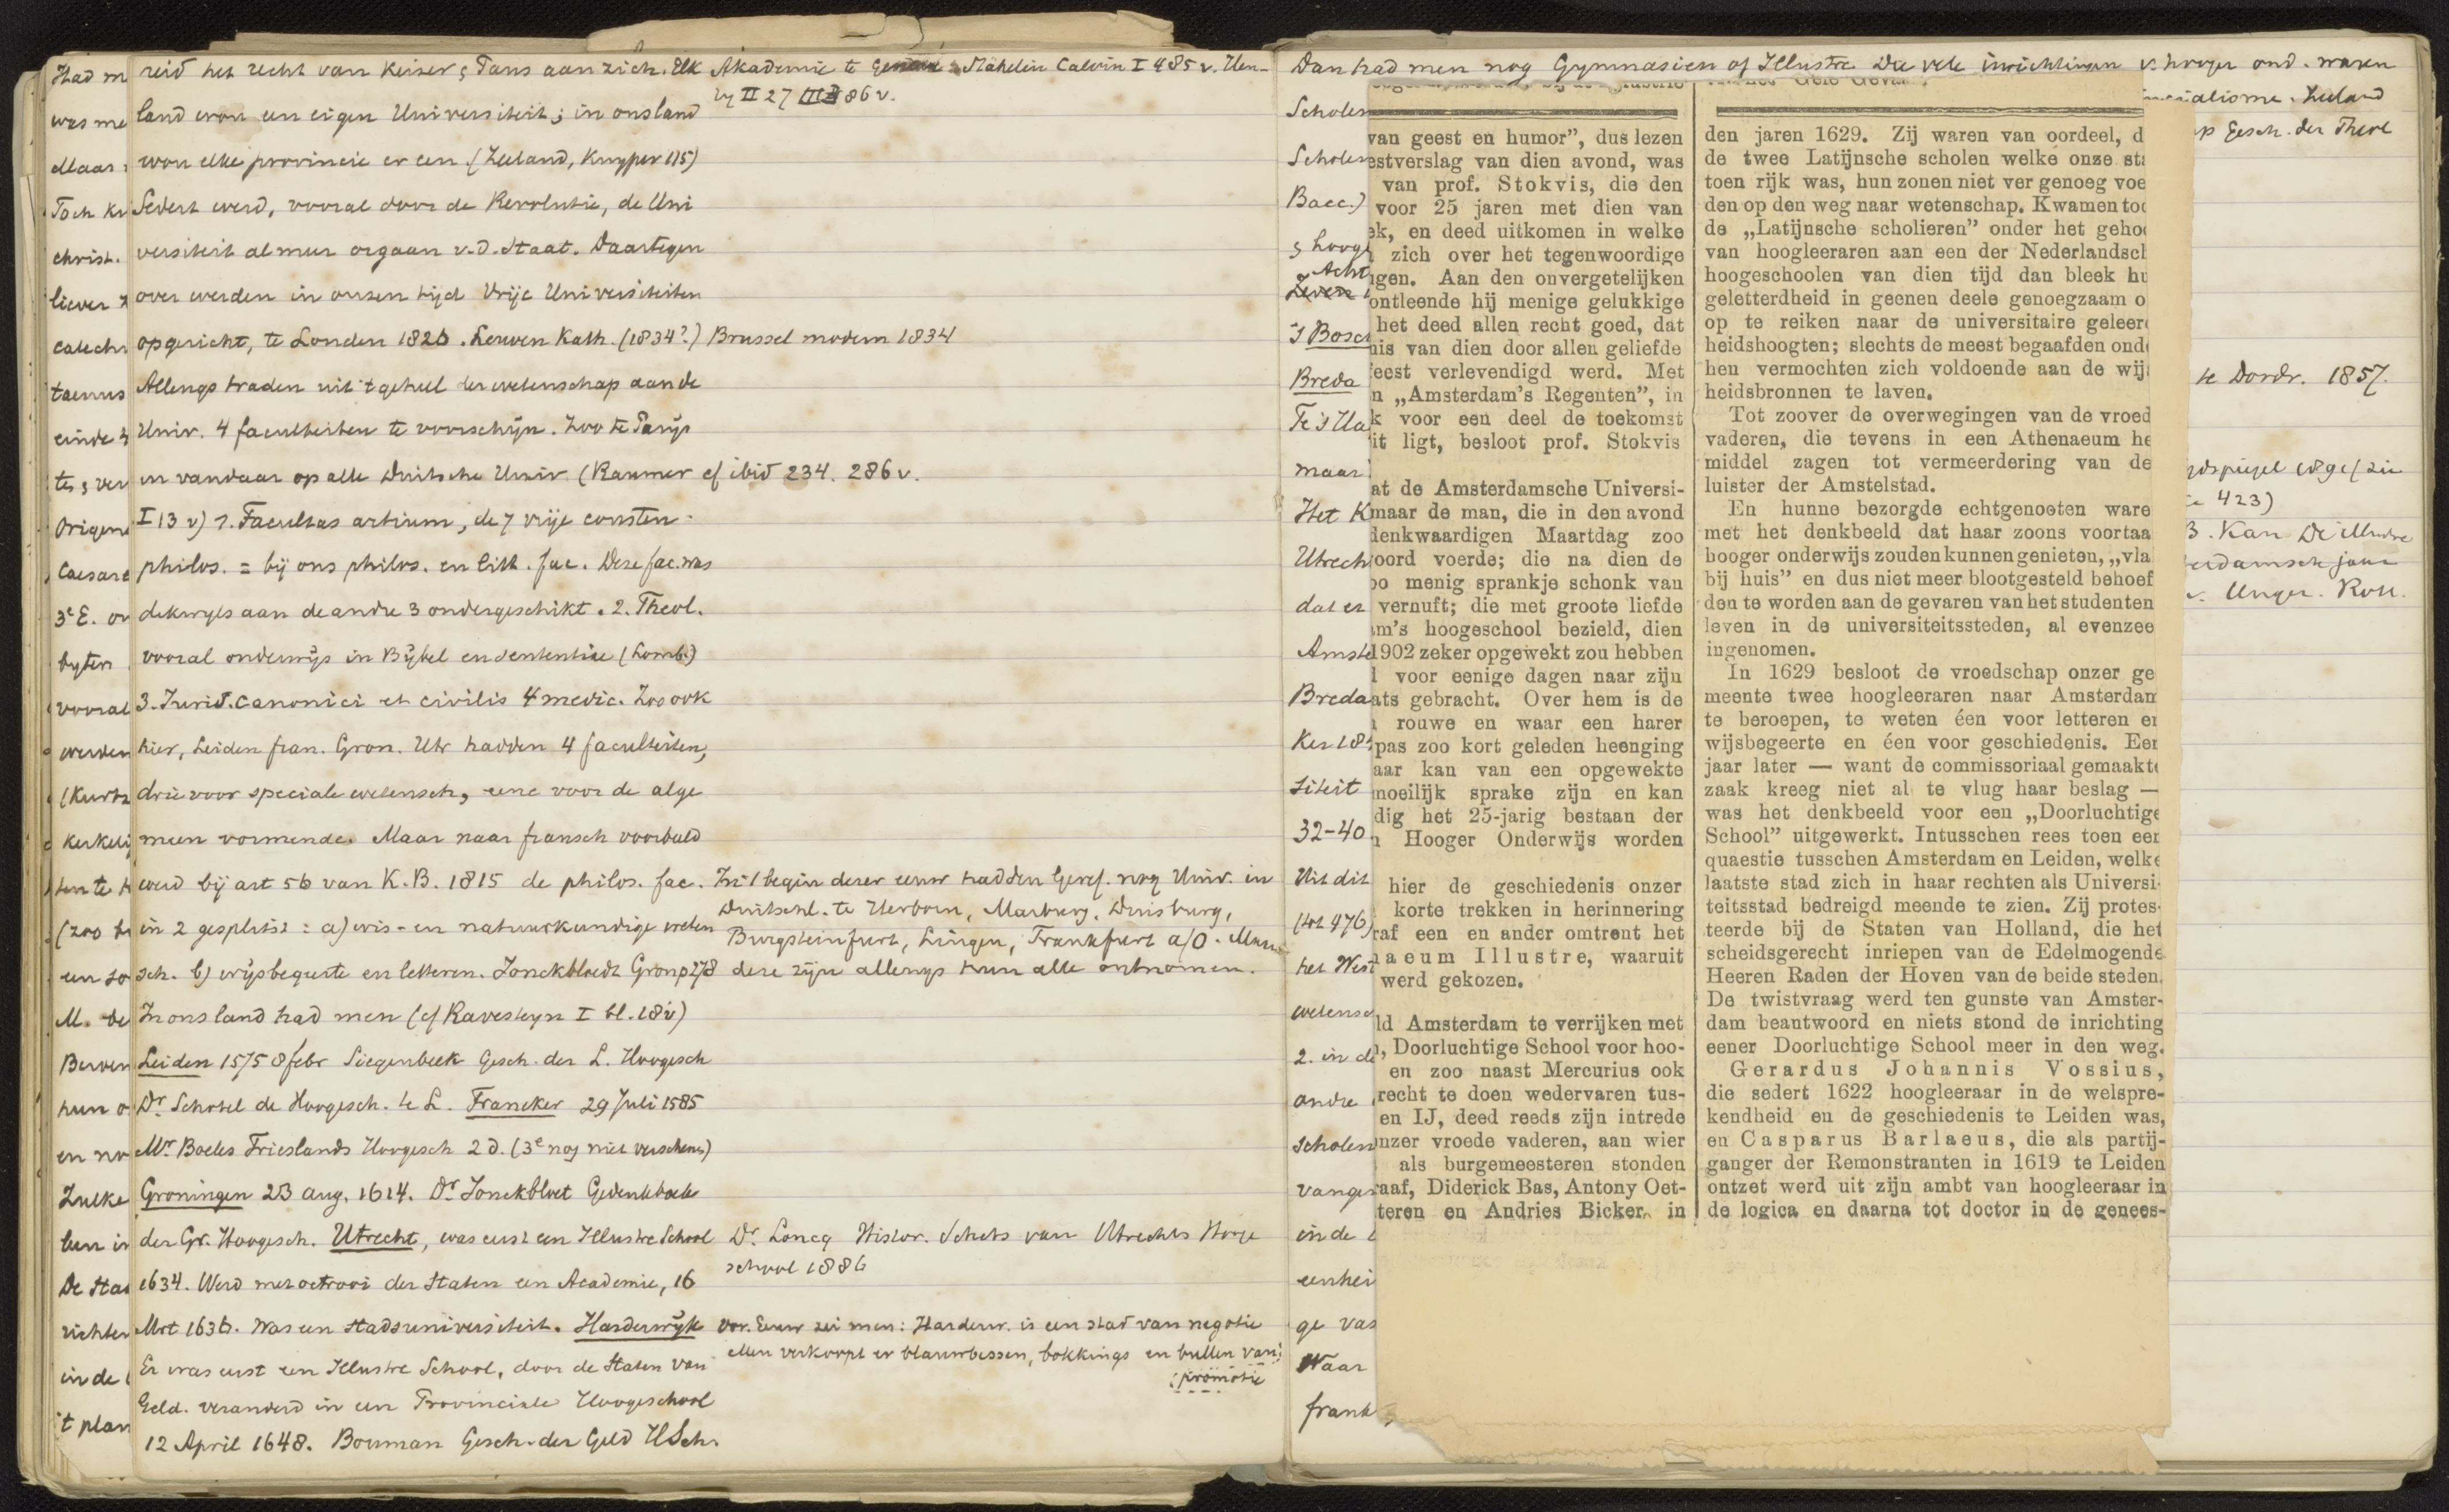 Had m
was me
Maar
Toch kr
christ.
liever
catech
taenus
einde
ts, ver
Origene
Caesare
3e E. on
byten
vooral
werden
(Kurtz
kerkelij
ten te h
(zoo b
een so
M. de
Berven
hun o
en no
Zulke
leen in
De Stad
richter
in de
't plan
reid het recht van Keizer & Paus aan zich. Elk
land won een eigen Universiteit; in ons land
won elke provincie er een. (Zeeland, Kuyper 115)
Sedert werd, vooral door de Revolutie, de Uni
versiteit al meer orgaan v.d. Staat. Daartegen
over werden in onzen tijd Vrije Universiteiten
opgericht, te Londen 1826. Leuven Kath. (1834?) Brussel modern 1834
Allengs traden uit 't geheel der wetenschap aan de
Univ. 4 faculteiten te voorschijn. Zoo te Parijs
en vandaar op alle Duitsche Univ. (Raumer cf ibid 234. 286 v.
I 13 v) 1. Facultas artium, de 7 vrije consten -
philos. = bij ons philos. en litt. fac. Deze fac. was
dikwijls aan de andre 3 ondergeschikt. 2. Theol.
vooral onderwijs in Bijbel en sententiae (Lomb.)
3. Jurid. canonici et civilis 4 medic. Zoo ook
hier, Leiden Fran. Gron. Utr hadden 4 faculteiten,
drie voor speciale wetensch, eene voor de alge
meen vormende. Maar naar fransch voorbeeld
werd bij art 56 van K.B. 1815 de philos. fac.
in 2 gesplitst: a) wis- en natuurkundige weten
sch. b) wijsbegeerte en letteren. Jonckbloedt Gron p 278
In ons land had men (cf Ravesteyn I bl. 18 v)
Leiden 1575 8 febr Siegenbeek Gesch. der L. Hoogesch
Dr. Schotel de Hoogesch. te L. Franeker 29 Juli 1585
Mr. Boeles Frieslands Hoogesch 2 d. (3e nog niet verschenen)
Groningen 23 aug. 1614. Dr. Jonckbloet Gedenkboek
der Gr. Hoogesch. Utrecht, was eerst een Illustre School
1634. Werd met octrooi der Staten een Academie, 16
Mrt 1636. Was een stadsuniversiteit. Harderwijk
Er was eerst een Illustre School, door de Staten van
Geld. veranderd in een Provinciale Hoogeschool
12 April 1648. Bouman Gesch. der Geld HSch.
Akademie te Genève: Stähelin Calvin I 485 v. Uen-
by II 27 III 86 v.
In 't begin dezer eeuw hadden Geref. nog Univ. in
Duitschl. te Herborn, Marburg, Duisburg,
Burgsteinfurt, Lingen, Frankfurt a/O. Maar
deze zijn allengs hun alle ontnomen.
Dr. Loncq Histor. Schets van Utrechts Hooge
school 1886
Vor. Eeuw zei men: Harderw. is een stad van negotie
Men verkoopt er blauwbessen, bokkings en bullen van
promotie
Dan had men nog Gymnasien of Illustre Die vele inrichtingen v. hooger ond. waren
Scholen
Scholen
Bacc.)
& hooge
Acht
Zeven
'S Bosch
Breda
Te 's Ha
maar
Het K
Utrecht
dat er
Amste
Breda
Ker 18
siteit
32-40
Uit dit
(tot 476)
het West
wetensc
2. in de
andre
scholen
vange
in de
eenhei
ge vas
Waar
frank
van geest en humor”, dus lezen
estverslag van dien avond, was
van prof. Stokvis, die den
voor 25 jaren met dien van
ek, en deed uitkomen in welke
zich over het tegenwoordige
ngen. Aan den onvergetelijken
ontleende hij menige gelukkige
het deed allen recht goed, dat
nis van dien door allen geliefde
feest verlevendigd werd. Met
n „Amsterdam's Regenten”, in
k voor een deel de toekomst
it ligt, besloot prof. Stokvis
at de Amsterdamsche Universi-
maar de man, die in den avond
denkwaardigen Maartdag zoo
oord voerde; die na dien de
oo menig sprankje schonk van
vernuft; die met groote liefde
m's hoogeschool bezield, dien
1902 zeker opgewekt zou hebben
l voor eenige dagen naar zijn
ats gebracht. Over hem is de
rouwe en waar een harer
pas zoo kort geleden heenging
aar kan van een opgewekte
moeilijk sprake zijn en kan
dig het 25-jarig bestaan der
n Hooger Onderwijs worden
hier de geschiedenis onzer
korte trekken in herinnering
raf een en ander omtrent het
naeum Illustre, waaruit
werd gekozen.
ld Amsterdam te verrijken met
, Doorluchtige School voor hoo-
en zoo naast Mercurius ook
recht te doen wedervaren tus-
en IJ, deed reeds zijn intrede
onzer vroede vaderen, aan wier
als burgemeesteren stonden
raaf, Diderick Bas, Antony Oet-
teren en Andries Bicker, in
den jaren 1629. Zij waren van oordeel, d
de twee Latijnsche scholen welke onze sta
toen rijk was, hun zonen niet ver genoeg voe
den op den weg naar wetenschap. Kwamen toc
de „Latijnsche scholieren” onder het geho
van hoogleeraren aan een der Nederlandsch
hoogescholen van dien tijd dan bleek hu
geletterdheid in geenen deele genoegzaam o
op te reiken naar de universitaire geleer
heidshoogten; slechts de meest begaafden ond
hen vermochten zich voldoende aan de wij
heidsbronnen te laven.
Tot zoover de overwegingen van de vroed
vaderen, die tevens in een Athenaeum he
middel zagen tot vermeerdering van de
luister der Amstelstad.
En hunne bezorgde echtgenooten ware
met het denkbeeld dat haar zoons voortaa
hooger onderwijs zouden kunnen genieten, „vla
bij huis” en dus niet meer blootgesteld behoef
den te worden aan de gevaren van het studenten
leven in de universiteitssteden, al evenzee
ingenomen.
In 1629 besloot de vroedschap onzer ge
meente twee hoogleeraren naar Amsterdam
te beroepen, te weten één voor letteren en
wijsbegeerte en één voor geschiedenis. Een
jaar later — want de commissoriaal gemaakte
zaak kreeg niet al te vlug haar beslag —
was het denkbeeld voor een „Doorluchtige
School” uitgewerkt. Intusschen rees toen een
quaestie tusschen Amsterdam en Leiden, welke
laatste stad zich in haar rechten als Universi-
teitsstad bedreigd meende te zien. Zij protes-
teerde bij de Staten van Holland, die het
scheidsgerecht inriepen van de Edelmogende
Heeren Raden der Hoven van de beide steden.
De twistvraag werd ten gunste van Amster-
dam beantwoord en niets stond de inrichting
eener Doorluchtige School meer in den weg.
Gerardus Johannis Vossius,
die sedert 1622 hoogleeraar in de welspre-
kendheid en de geschiedenis te Leiden was,
en Casparus Barlaeus, die als partij-
ganger der Remonstranten in 1619 te Leiden
ontzet werd uit zijn ambt van hoogleeraar in
de logica en daarna tot doctor in de genees-
incialisme. Zeeland
p Gesch. der Theol
te Dordr. 1857.
423)
B. Kan De Illustre
erdamsch jaar
v. Unger. Rott.